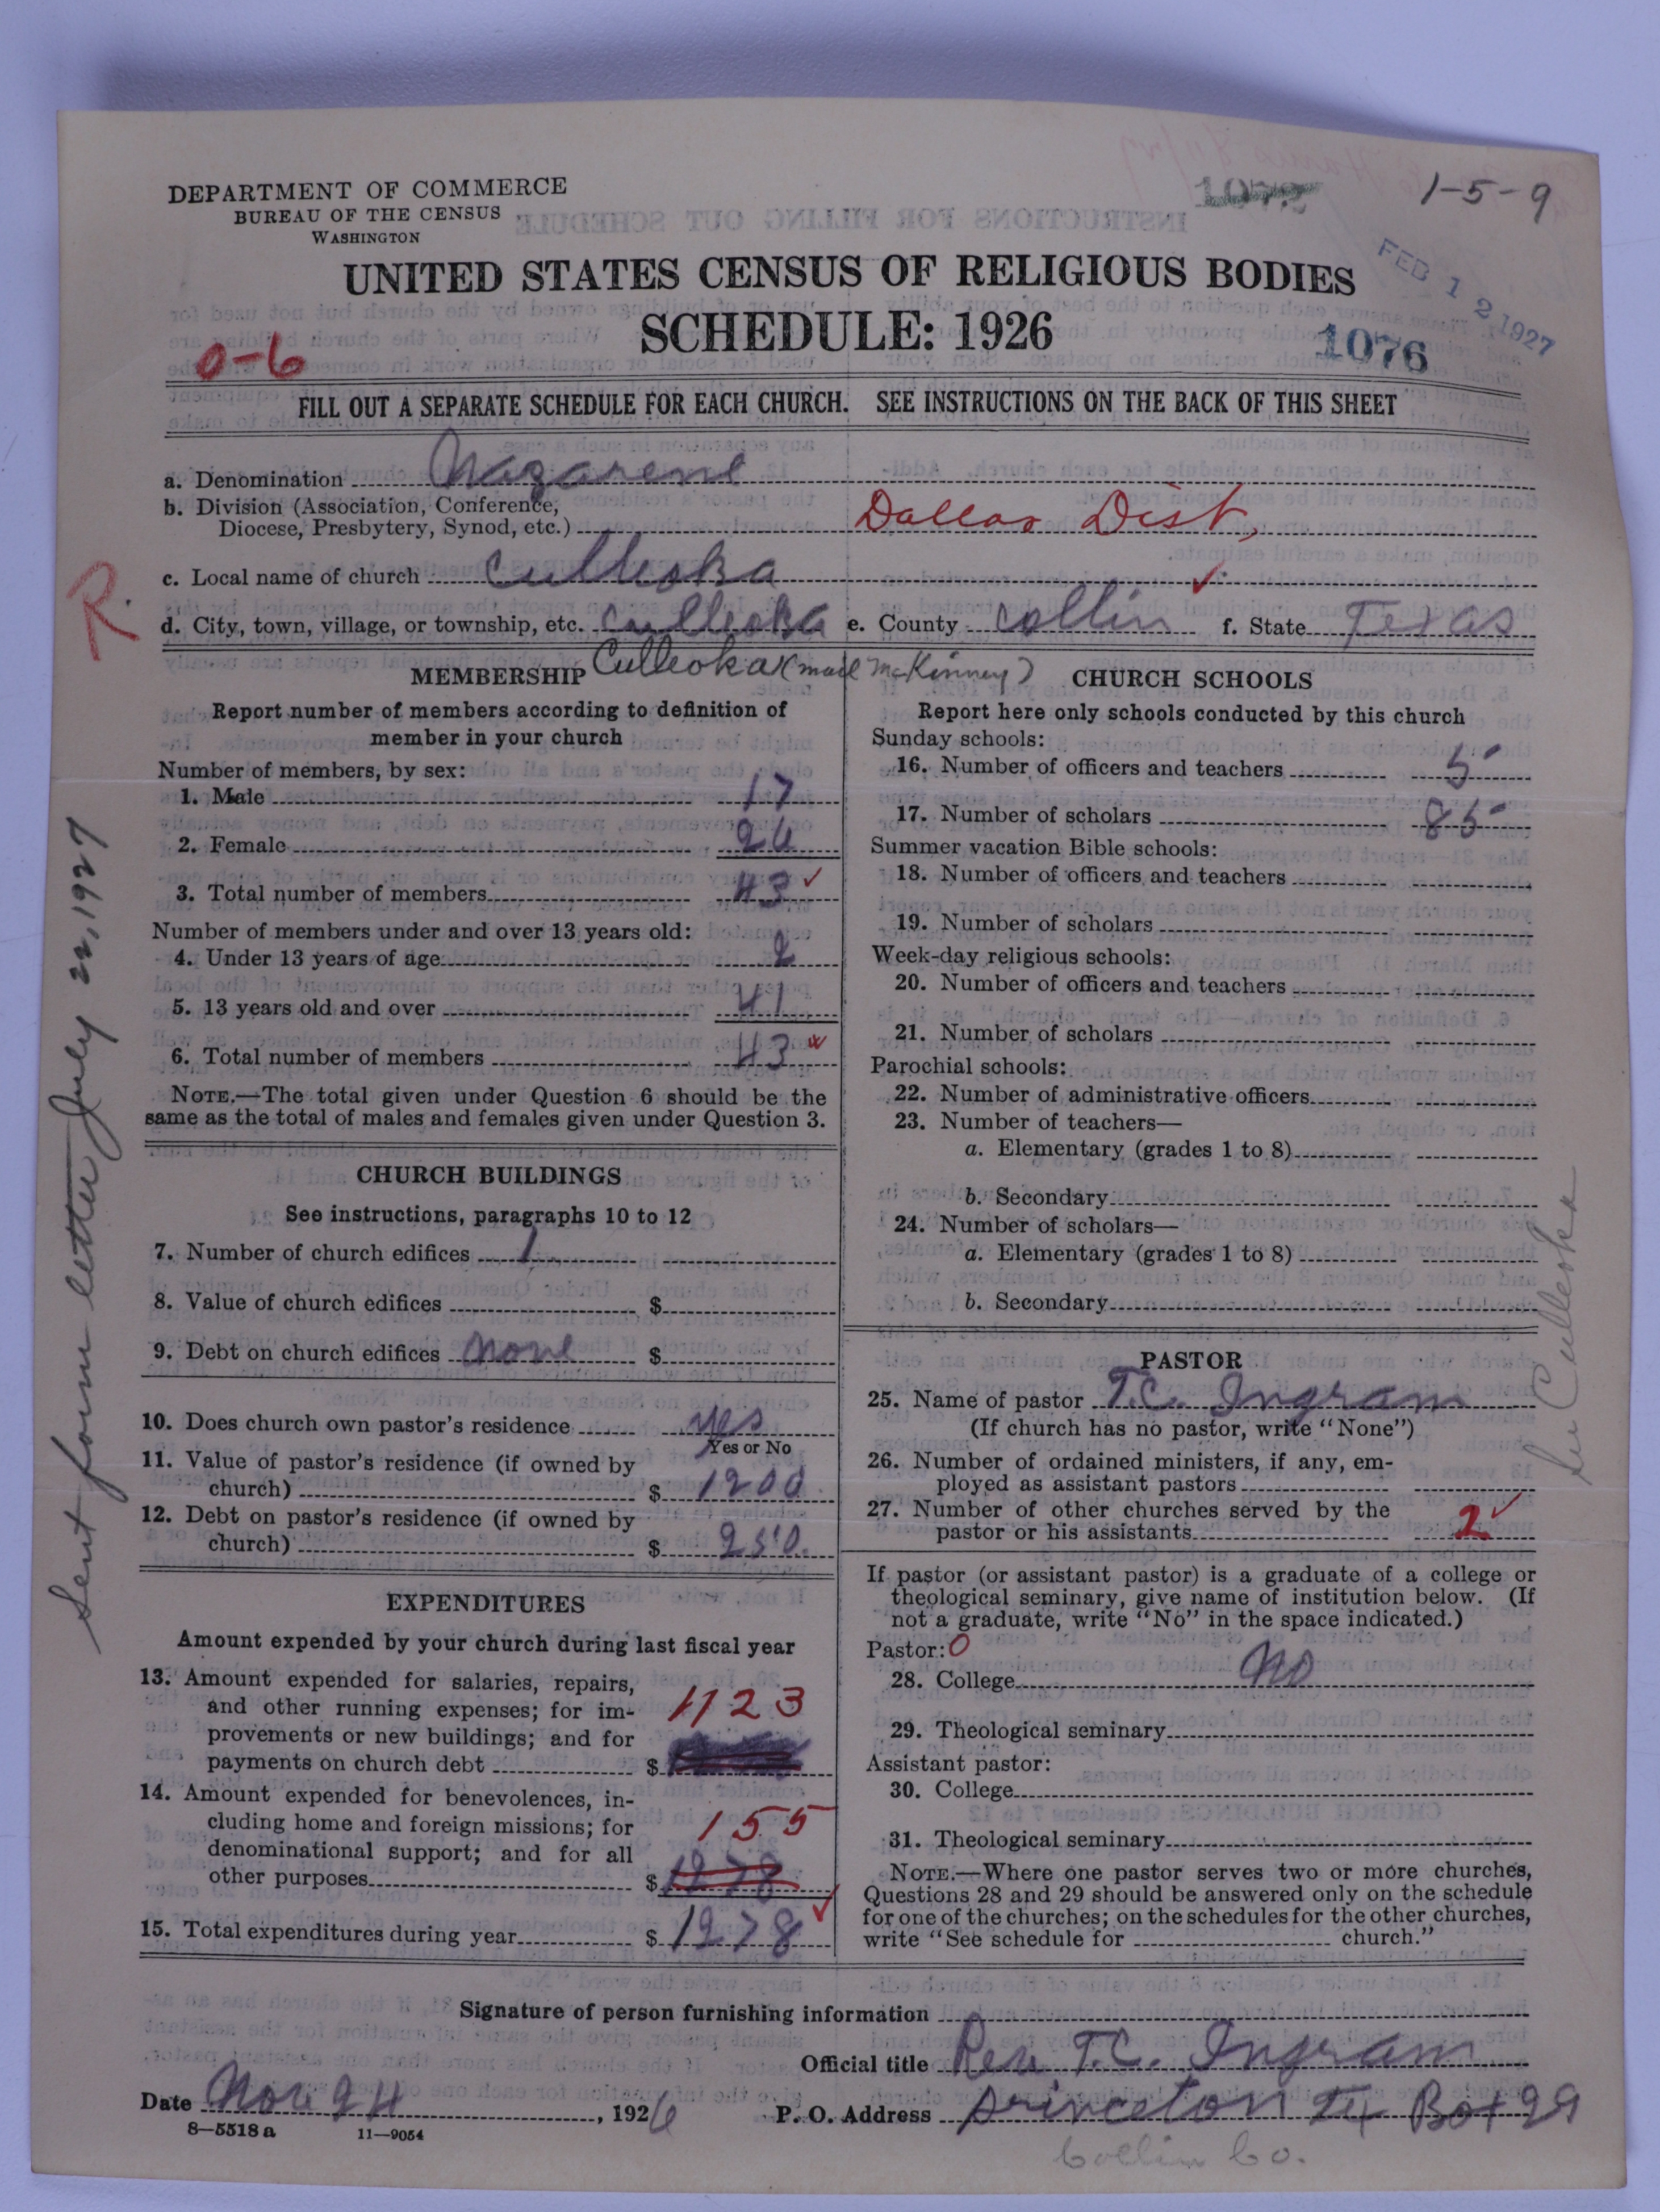 DEPARTMENT OF COMMERCE
BUREAU OF THE CENSUS
WASHINGTON
1-5-9
UNITED STATES CENSUS OF RELIGIOUS BODIES
SCHEDULE: 1926
FEB 12 1927
1076
0-6
FILL OUT A SEPARATE SCHEDULE FOR EACH CHURCH. SEE INSTRUCTIONS ON THE BACK OF THIS SHEET
a. Denomination Nazarene
b. Division (Association, Conference,
Diocese, Presbytery, Synod, etc.) Dallas Dist,
R.
c. Local name of church Culleoka
d. City, town, village, or township, etc. Culleoka e. County Collin f. State Texas
Culleoka (mail McKinney)
MEMBERSHIP
Report number of members according to definition of
member in your church
Number of members, by sex:
1. Male 17
2. Female 26
3. Total number of members 43 ✓
Number of members under and over 13 years old:
4. Under 13 years of age 2
5. 13 years old and over 41
6. Total number of members 43
NOTE.—The total given under Question 6 should be the
same as the total of males and females given under Question 3.
CHURCH BUILDINGS
See instructions, paragraphs 10 to 12
7. Number of church edifices 1
8. Value of church edifices $
9. Debt on church edifices none $
10. Does church own pastor's residence yes
Yes or No
11. Value of pastor's residence (if owned by
church) $ 1200
12. Debt on pastor's residence (if owned by
church) $ 250.
EXPENDITURES
Amount expended by your church during last fiscal year
13. Amount expended for salaries, repairs,
and other running expenses; for im-
provements or new buildings; and for
payments on church debt $ 1123
14. Amount expended for benevolences, in-
cluding home and foreign missions; for
denominational support; and for all
other purposes $ 155
1278
15. Total expenditures during year $ 1278 ✓
CHURCH SCHOOLS
Report here only schools conducted by this church
Sunday schools:
16. Number of officers and teachers 5
17. Number of scholars 85
Summer vacation Bible schools:
18. Number of officers and teachers
19. Number of scholars
Week-day religious schools:
20. Number of officers and teachers
21. Number of scholars
Parochial schools:
22. Number of administrative officers
23. Number of teachers—
a. Elementary (grades 1 to 8)
b. Secondary
24. Number of scholars—
a. Elementary (grades 1 to 8)
b. Secondary
PASTOR
25. Name of pastor T.C. Ingram
(If church has no pastor, write "None")
26. Number of ordained ministers, if any, em-
ployed as assistant pastors
27. Number of other churches served by the
pastor or his assistants 2 ✓
If pastor (or assistant pastor) is a graduate of a college or
theological seminary, give name of institution below. (If
not a graduate, write "No" in the space indicated.)
Pastor: 0
28. College No
29. Theological seminary
Assistant pastor:
30. College
31. Theological seminary
NOTE.—Where one pastor serves two or more churches,
Questions 28 and 29 should be answered only on the schedule
for one of the churches; on the schedules for the other churches,
write "See schedule for church."
Signature of person furnishing information
Official title Rev. T.C. Ingram
Date Nov 24, 1926
P. O. Address Princeton Tex Box 29
Collin Co.
8—5518 a 11—9054
Sent form letter July 22, 1927
Culleoka